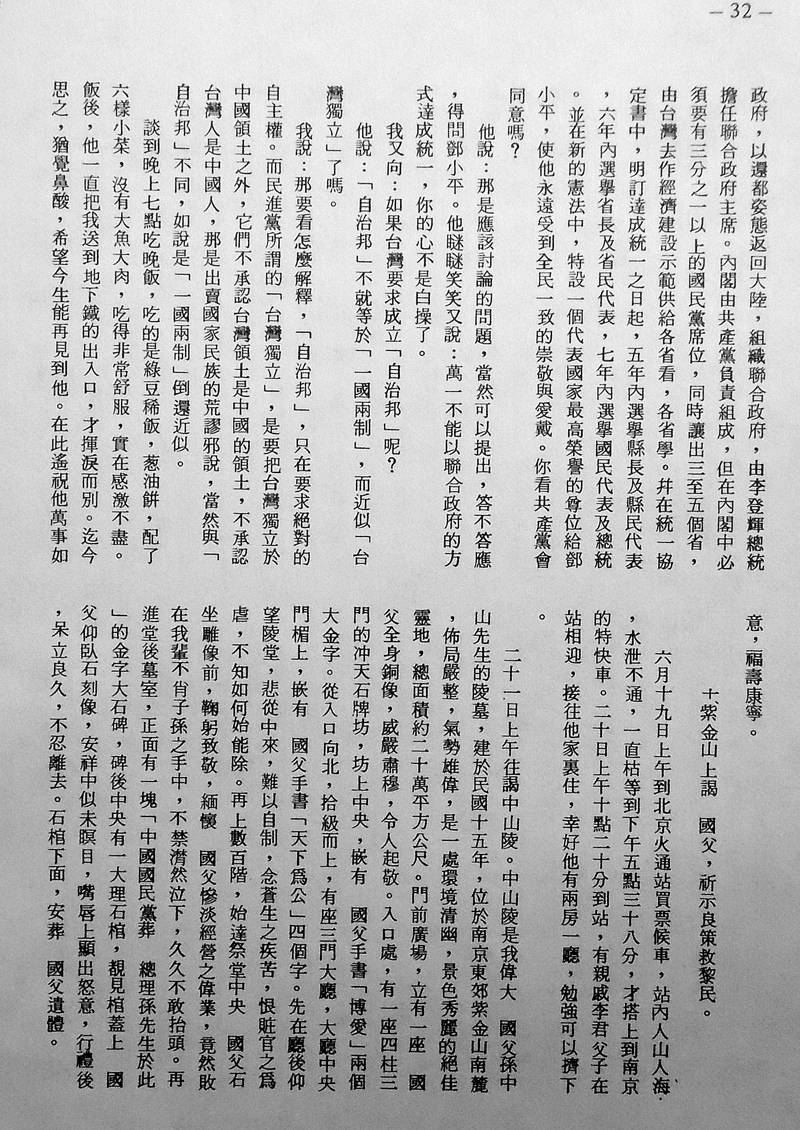 — 32 —
政府，以還都姿態返回大陸，組織聯合政府，由李登輝總統
擔任聯合政府主席。內閣由共產黨負責組成，但在內閣中必
須要有三分之一以上的國民黨席位，同時讓出三至五個省，
由台灣去作經濟建設示範供給各省看，各省學。幷在統一協
定書中，明訂達成統一之日起，五年內選舉縣長及縣民代表
，六年內選舉省長及省民代表，七年內選舉國民代表及總統
。並在新的憲法中，特設一個代表國家最高榮譽的尊位給鄧
小平，使他永遠受到全民一致的崇敬與愛戴。你看共產黨會
同意嗎？
他說：那是應該討論的問題，當然可以提出，答不答應
，得問鄧小平。他瞇瞇笑笑又說：萬一不能以聯合政府的方
式達成統一，你的心不是白操了。
我又向：如果台灣要求成立「自治邦」呢？
他說：「自治邦」不就等於「一國兩制」，而近似「台
灣獨立」了嗎。
我說：那要看怎麼解釋，「自治邦」，只在要求絕對的
自主權。而民進黨所謂的「台灣獨立」，是要把台灣獨立於
中國領土之外，它們不承認台灣領土是中國的領土，不承認
台灣人是中國人，那是出賣國家民族的荒謬邪說，當然與「
自治邦」不同，如說是「一國兩制」倒還近似。
談到晚上七點吃晚飯，吃的是綠豆稀飯，葱油餅，配了
六樣小菜，沒有大魚大肉，吃得非常舒服，實在感激不盡。
飯後，他一直把我送到地下鐵的出入口，才揮淚而別。迄今
思之，猶覺鼻酸，希望今生能再見到他。在此遙祝他萬事如
意，福壽康寧。
十紫金山上謁　國父，祈示良策救黎民。
六月十九日上午到北京火通站買票候車，站內人山人海
，水泄不通，一直枯等到下午五點三十八分，才搭上到南京
的特快車。二十日上午十點二十分到站，有親戚李君父子在
站相迎，接往他家裏住，幸好他有兩房一廳，勉強可以擠下
。
二十一日上午往謁中山陵。中山陵是我偉大　國父孫中
山先生的陵墓，建於民國十五年，位於南京東郊紫金山南麓
，佈局嚴整，氣勢雄偉，是一處環境清幽，景色秀麗的絕佳
靈地，總面積約二十萬平方公尺。門前廣場，立有一座　國
父全身銅像，威嚴肅穆，令人起敬。入口處，有一座四柱三
門的冲天石牌坊，坊上中央，嵌有　國父手書「博愛」兩個
大金字。從入口向北，拾級而上，有座三門大廳，大廳中央
門楣上，嵌有　國父手書「天下爲公」四個字。先在廳後仰
望陵堂，悲從中來，難以自制，念蒼生之疾苦，恨賍官之爲
虐，不知如何始能除。再上數百階，始達祭堂中央　國父石
坐雕像前，鞠躬致敬，緬懷　國父慘淡經營之偉業，竟然敗
在我輩不肖子孫之手中，不禁潸然泣下，久久不敢抬頭。再
進堂後墓室，正面有一塊「中國國民黨葬　總理孫先生於此
」的金字大石碑，碑後中央有一大理石棺，覩見棺蓋上　國
父仰臥石刻像，安祥中似未瞑目，嘴唇上顯出怒意，行禮後
，呆立良久，不忍離去。石棺下面，安葬　國父遺體。